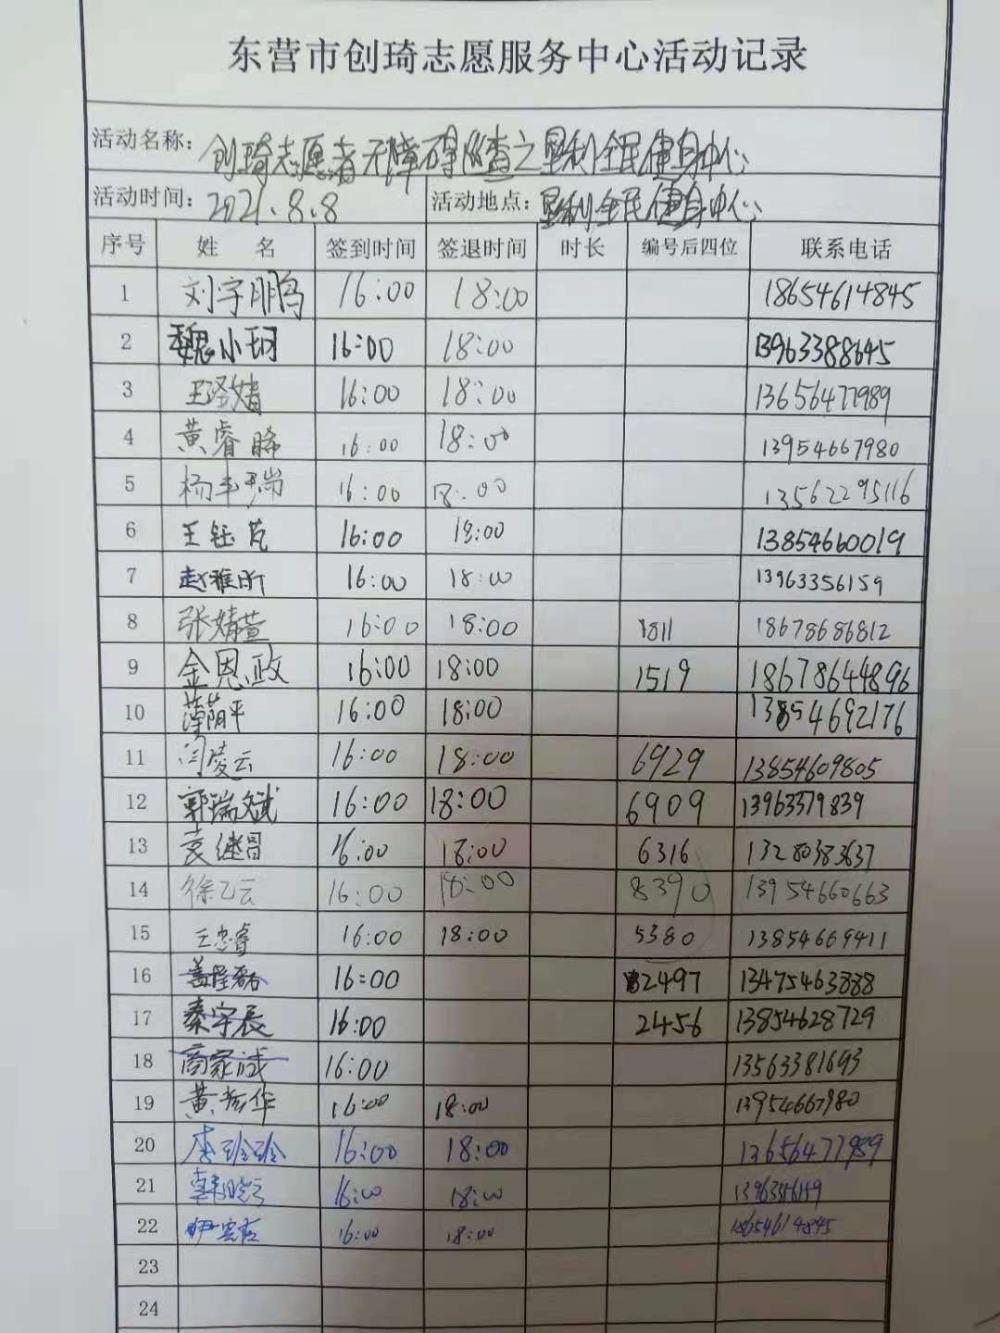 东营市创琦志愿服务中心活动记录
活动名称: 创琦志愿者无障碍巡查之垦利全民健身中心
活动时间: 2021.8.8 活动地点: 垦利全民健身中心
序号 姓 名 签到时间 签退时间 时长 编号后四位 联系电话
1 刘宇鹏 16:00 18:00 18654614845
2 魏小珂 16:00 18:00 13963388645
3 王 婧 16:00 18:00 13656477989
4 黄睿晞 16:00 18:00 13954667980
5 杨 瑞 16:00 18:00 13562295116
6 王钰芃 16:00 18:00 13854660019
7 赵雅昕 16:00 18:00 13963356159
8 张婧萱 16:00 18:00 1811 18678686812
9 金恩政 16:00 18:00 1519 18678644896
10 平 16:00 18:00 13854692176
11 闫凌云 16:00 18:00 6929 13854609805
12 郭瑞斌 16:00 18:00 6909 13963379839
13 袁继冒 16:00 18:00 6316 13280383637
14 徐乙云 16:00 18:00 8390 13954660663
15 王忠睿 16:00 18:00 5380 13854669411
16 16:00 2497 13475463888
17 秦宇辰 16:00 2456 13854628729
18 商家诚 16:00 13563381693
19 黄彦华 16:00 18:00 13954667980
20 李玲玲 16:00 18:00 13656477989
21 韩晓云 16:00 18:00
22 16:00 18:00 18654614845
23
24